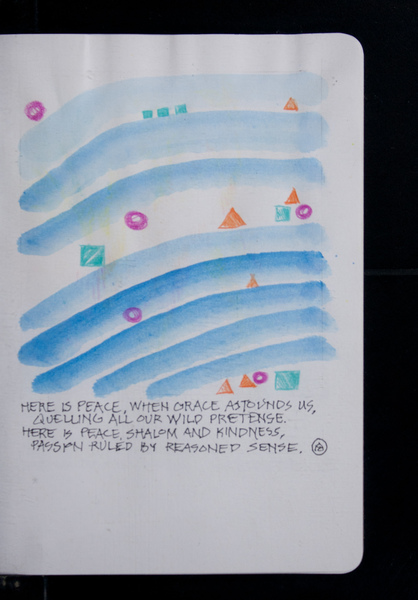 HERE IS PEACE, WHEN GRACE ASTOUNDS US,
QUELLING ALL OUR WILD PRETENSE.
HERE IS PEACE, SHALOM AND KINDNESS,
PASSION RULED BY REASONED SENSE.